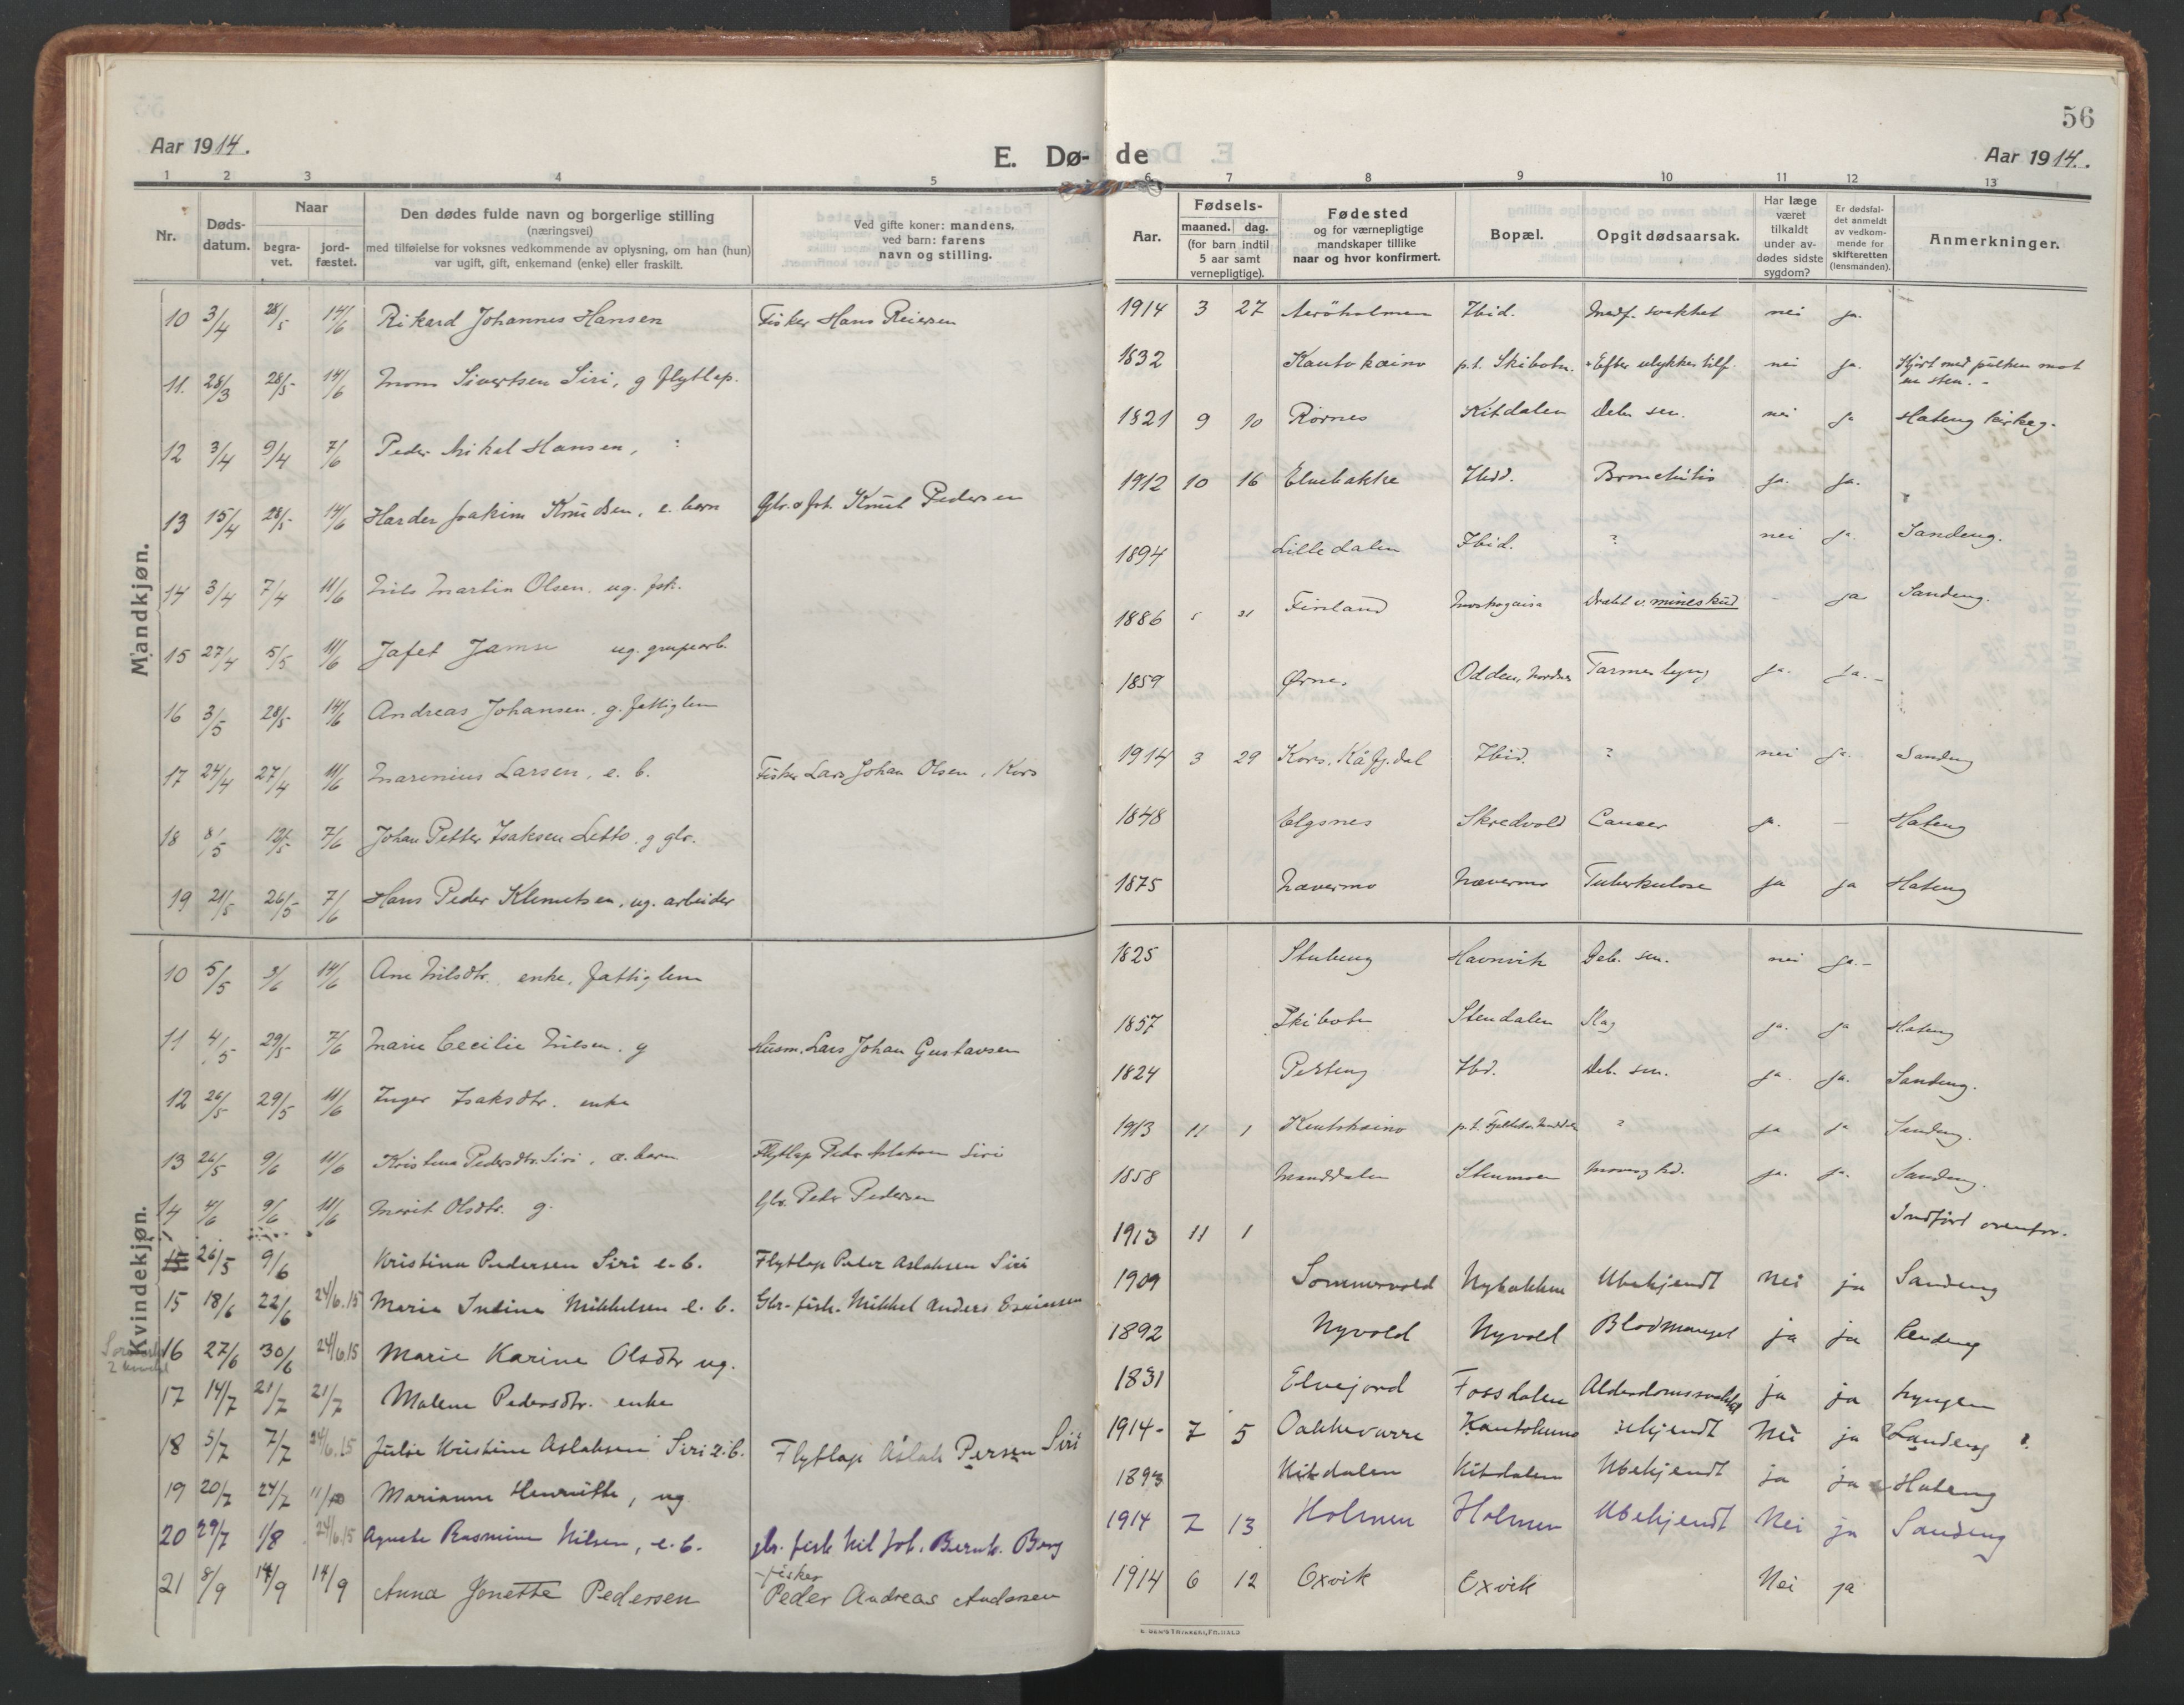 56
Aar 1914.
E. Dø- de
Aar 1914.
1 2 3 4 5 6 7 8 9 10 11 12 13
Nr.
Døds-
datum.
Naar
begra-
vet.
jord-
fæstet.
Den dødes fulde navn og borgerlige stilling
(næringsvei)
med tilføielse for voksnes vedkommende av oplysning, om han (hun)
var ugift, gift, enkemand (enke) eller fraskilt.
Ved gifte koner: mandens,
ved barn: farens
navn og stilling.
Aar.
Fødsels-
maaned. dag.
(for barn indtil
5 aar samt
vernepligtige).
Fødested
og for værnepligtige
mandskaper tillike
naar og hvor konfirmert.
Bopæl.
Opgit dødsaarsak.
Har læge
været
tilkaldt
under av-
dødes sidste
sygdom?
Er dødsfal-
det anmeldt
av vedkom-
mende for
skifteretten
(lensmanden).
Anmerkninger.
Mandkjøn.
10 3/4 28/5 14/6 Rikard Johannes Hansen Fisker Hans Reiersen 1914 3 27 Ibid. Medf. svakhet nei ja.
11. 28/3 28/5 14/6 Mons Sivertsen Siri, g flytlap. 1832 Kautokeino p.t. Skibotn. Efter ulykkestilf. nei ja. Kjørt med pulken mot
en sten. -
12 3/4 9/4 7/6 Peder Mikal Hansen, 1821 9 10 Rornes Kitdalen Deb. sen. nei ja Hateng kirkeg.
13 15/4 28/5 14/6 Harder Joakim Knudsen, e. barn Knut Pedersen 1912 10 16 Elvebakke Ibid. Bronchitis ja. ja.
14 3/4 7/4 11/6 Nils Martin Olsen. ug. fsk. 1894 Lilledalen Ibid. ? nei ja. Sandeng.
15 27/4 5/5 11/6 Jafet ug. 1886 Finland Dræbt v. mineskud - ja Sandeng.
16 3/5 28/5 14/6 Andreas Johansen. g. fattiglem 1859 Ørnes Odden, Nordnes Tarmeslyng ja. ja. -
17 24/4 27/4 11/6 Marenius Larsen, e. b. Fisker Lars Johan Olsen, Kors 1914 3 29 Kors. Kåfj.dal Ibid. ? nei ja. Sandeng
18 8/5 12/5 7/6 Johan Petter Isaksen Letto. g gbr. 1848 Elgsnes Skredvold Cancer ja. - Hateng
19 21/5 26/5 7/6 Hans Peder Klemetsen, ug. arbeider 1875 Nævermo Nævermo Tuberkulose ja ja Hateng
Kvindekjøn.
10 5/5 3/6 14/6 Ane Nilsdtr. enke, fattiglem 1825 Stubeng Havnvik Deb. sen. nei ja. -
11 4/5 29/5 7/6 Marie Cecilie Nilsen. g Husm. Lars Johan Gustavsen 1857 Skibotn Stendalen Slag ja. ja Hateng
12 26/5 29/5 11/6 Inger Isaksdtr. enke 1824 Ibd. Deb. sen. ja. ja. Sandeng.
13 26/5 9/6 11/6 Kristina Pedersdtr. Siri, e. barn Flytlap Peder Aslaksen Siri 1913 11 1 Kautokeino p.t. ? ja ja Sandeng.
14 4/6 9/6 11/6 Marit Olsdtr. g. Gbr. Peder Pedersen 1858 Manddalen Stenmoen ja. ja. Sandeng.
15 26/5 9/6 Kristina Pedersen Siri e. b. Flytlap Peder Aslaksen Siri 1913 11 1 Indført ovenfor.
15 18/6 22/6 24/6.15 Maria Indina Mikkelsen e. b. Gbr. fisk. Mikkel Anders Esaiassen 1909 Sommervold Nybakken Ubekjendt Nei ja Sandeng
16 27/6 30/6 24/6.15 Marie Karine Olsdtr ug. 1892 Nyvold Nyvold Blodmangel ja ja Sandeng
17 14/7 21/7 21/7 Malene Pedersdtr. enke 1831 Elvejord Fossdalen Alderdomssvakhet ja ja Lyngen
18 5/7 7/7 24/6.15 Julie Kristine Aslaksen Siri e. b. Flytlap Aslak Persen Siri 1914- 7 5 Oakkevarre Kautokeino ubekjendt Nei ja Sandeng ?
19 20/7 24/7 Marianne Henriette, ug 1893 Kitdalen Kitdalen Ubekjendt ja ja Hateng
20 29/7 1/8 24/6.15 Agnete Rasmine Nilsen, e. b. gbr. fisk Nil Joh. Bernh. Berg 1914 7 13 Holmen Holmen Ubekjendt Nei ja Sandeng
21 8/9 14/9 14/9 Anna Jonette Pedersen fisker Peder Andreas Andersen 1914 6 12 Oxvik Oxvik Nei ja